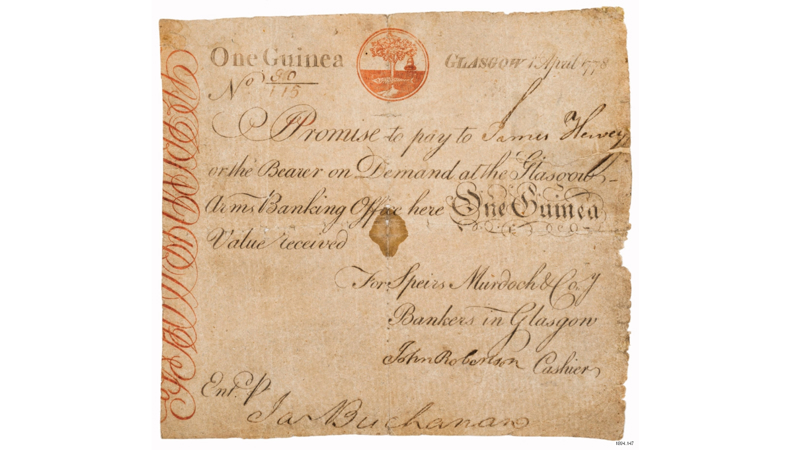 One Guinea
GLASGOW 1 April 1778
No 890/115
Promise to pay to James Hewey
or the Bearer on Demand at the Glasgow
Arms Banking Office here One Guinea
Value received
For Speirs Murdoch & Co.y
Bankers in Glasgow
John Robertson Cashier
Ent.d p.
Ja Buchanan
1694.147